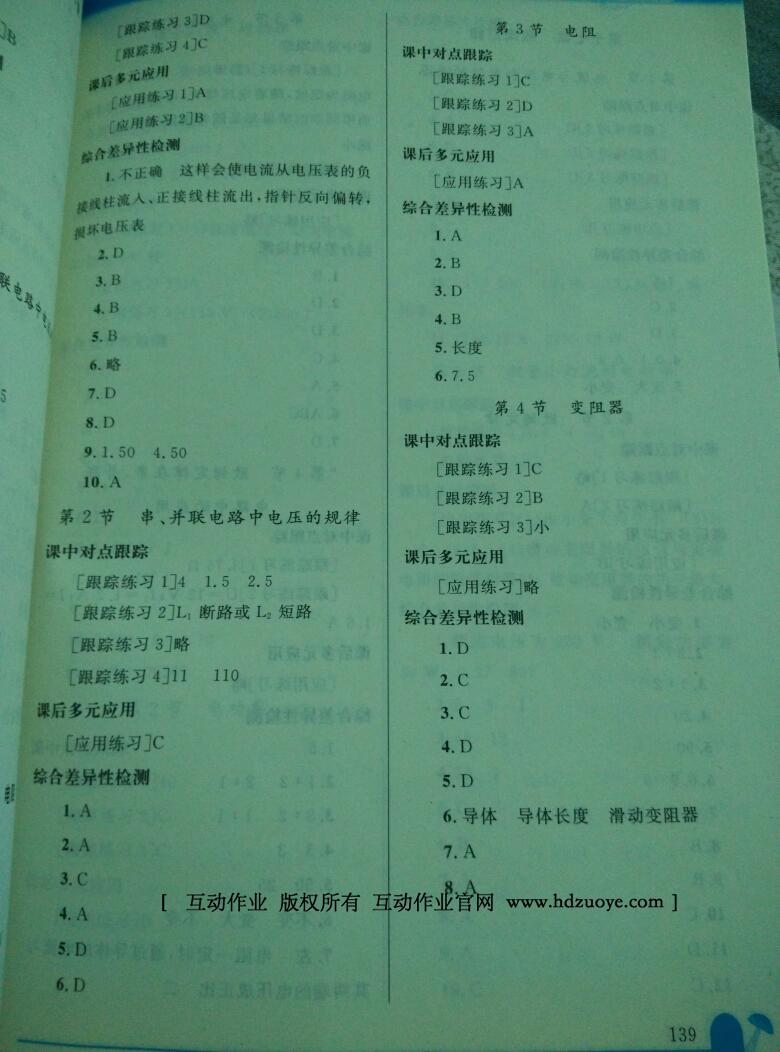 [跟踪练习 3]D
[跟踪练习 4]C
课后多元应用
[应用练习 1]A
[应用练习 2]B
综合差异性检测
1. 不正确 这样会使电流从电压表的负
接线柱流入、正接线柱流出,指针反向偏转,
损坏电压表
2. D
3. B
4. B
5. B
6. 略
7. D
8. D
9. 1.50 4.50
10. A
第 2 节 串、并联电路中电压的规律
课中对点跟踪
[跟踪练习 1]4 1.5 2.5
[跟踪练习 2]L₁ 断路或 L₂ 短路
[跟踪练习 3]略
[跟踪练习 4]11 110
课后多元应用
[应用练习]C
综合差异性检测
1. A
2. A
3. C
4. A
5. D
6. D
第 3 节 电阻
课中对点跟踪
[跟踪练习 1]C
[跟踪练习 2]D
[跟踪练习 3]A
课后多元应用
[应用练习]A
综合差异性检测
1. A
2. B
3. D
4. B
5. 长度
6. 7.5
第 4 节 变阻器
课中对点跟踪
[跟踪练习 1]C
[跟踪练习 2]B
[跟踪练习 3]小
课后多元应用
[应用练习]略
综合差异性检测
1. D
2. C
3. C
4. D
5. D
6. 导体 导体长度 滑动变阻器
7. A
8. A
[ 互动作业 版权所有 互动作业官网 www.hdzuoye.com ]
139